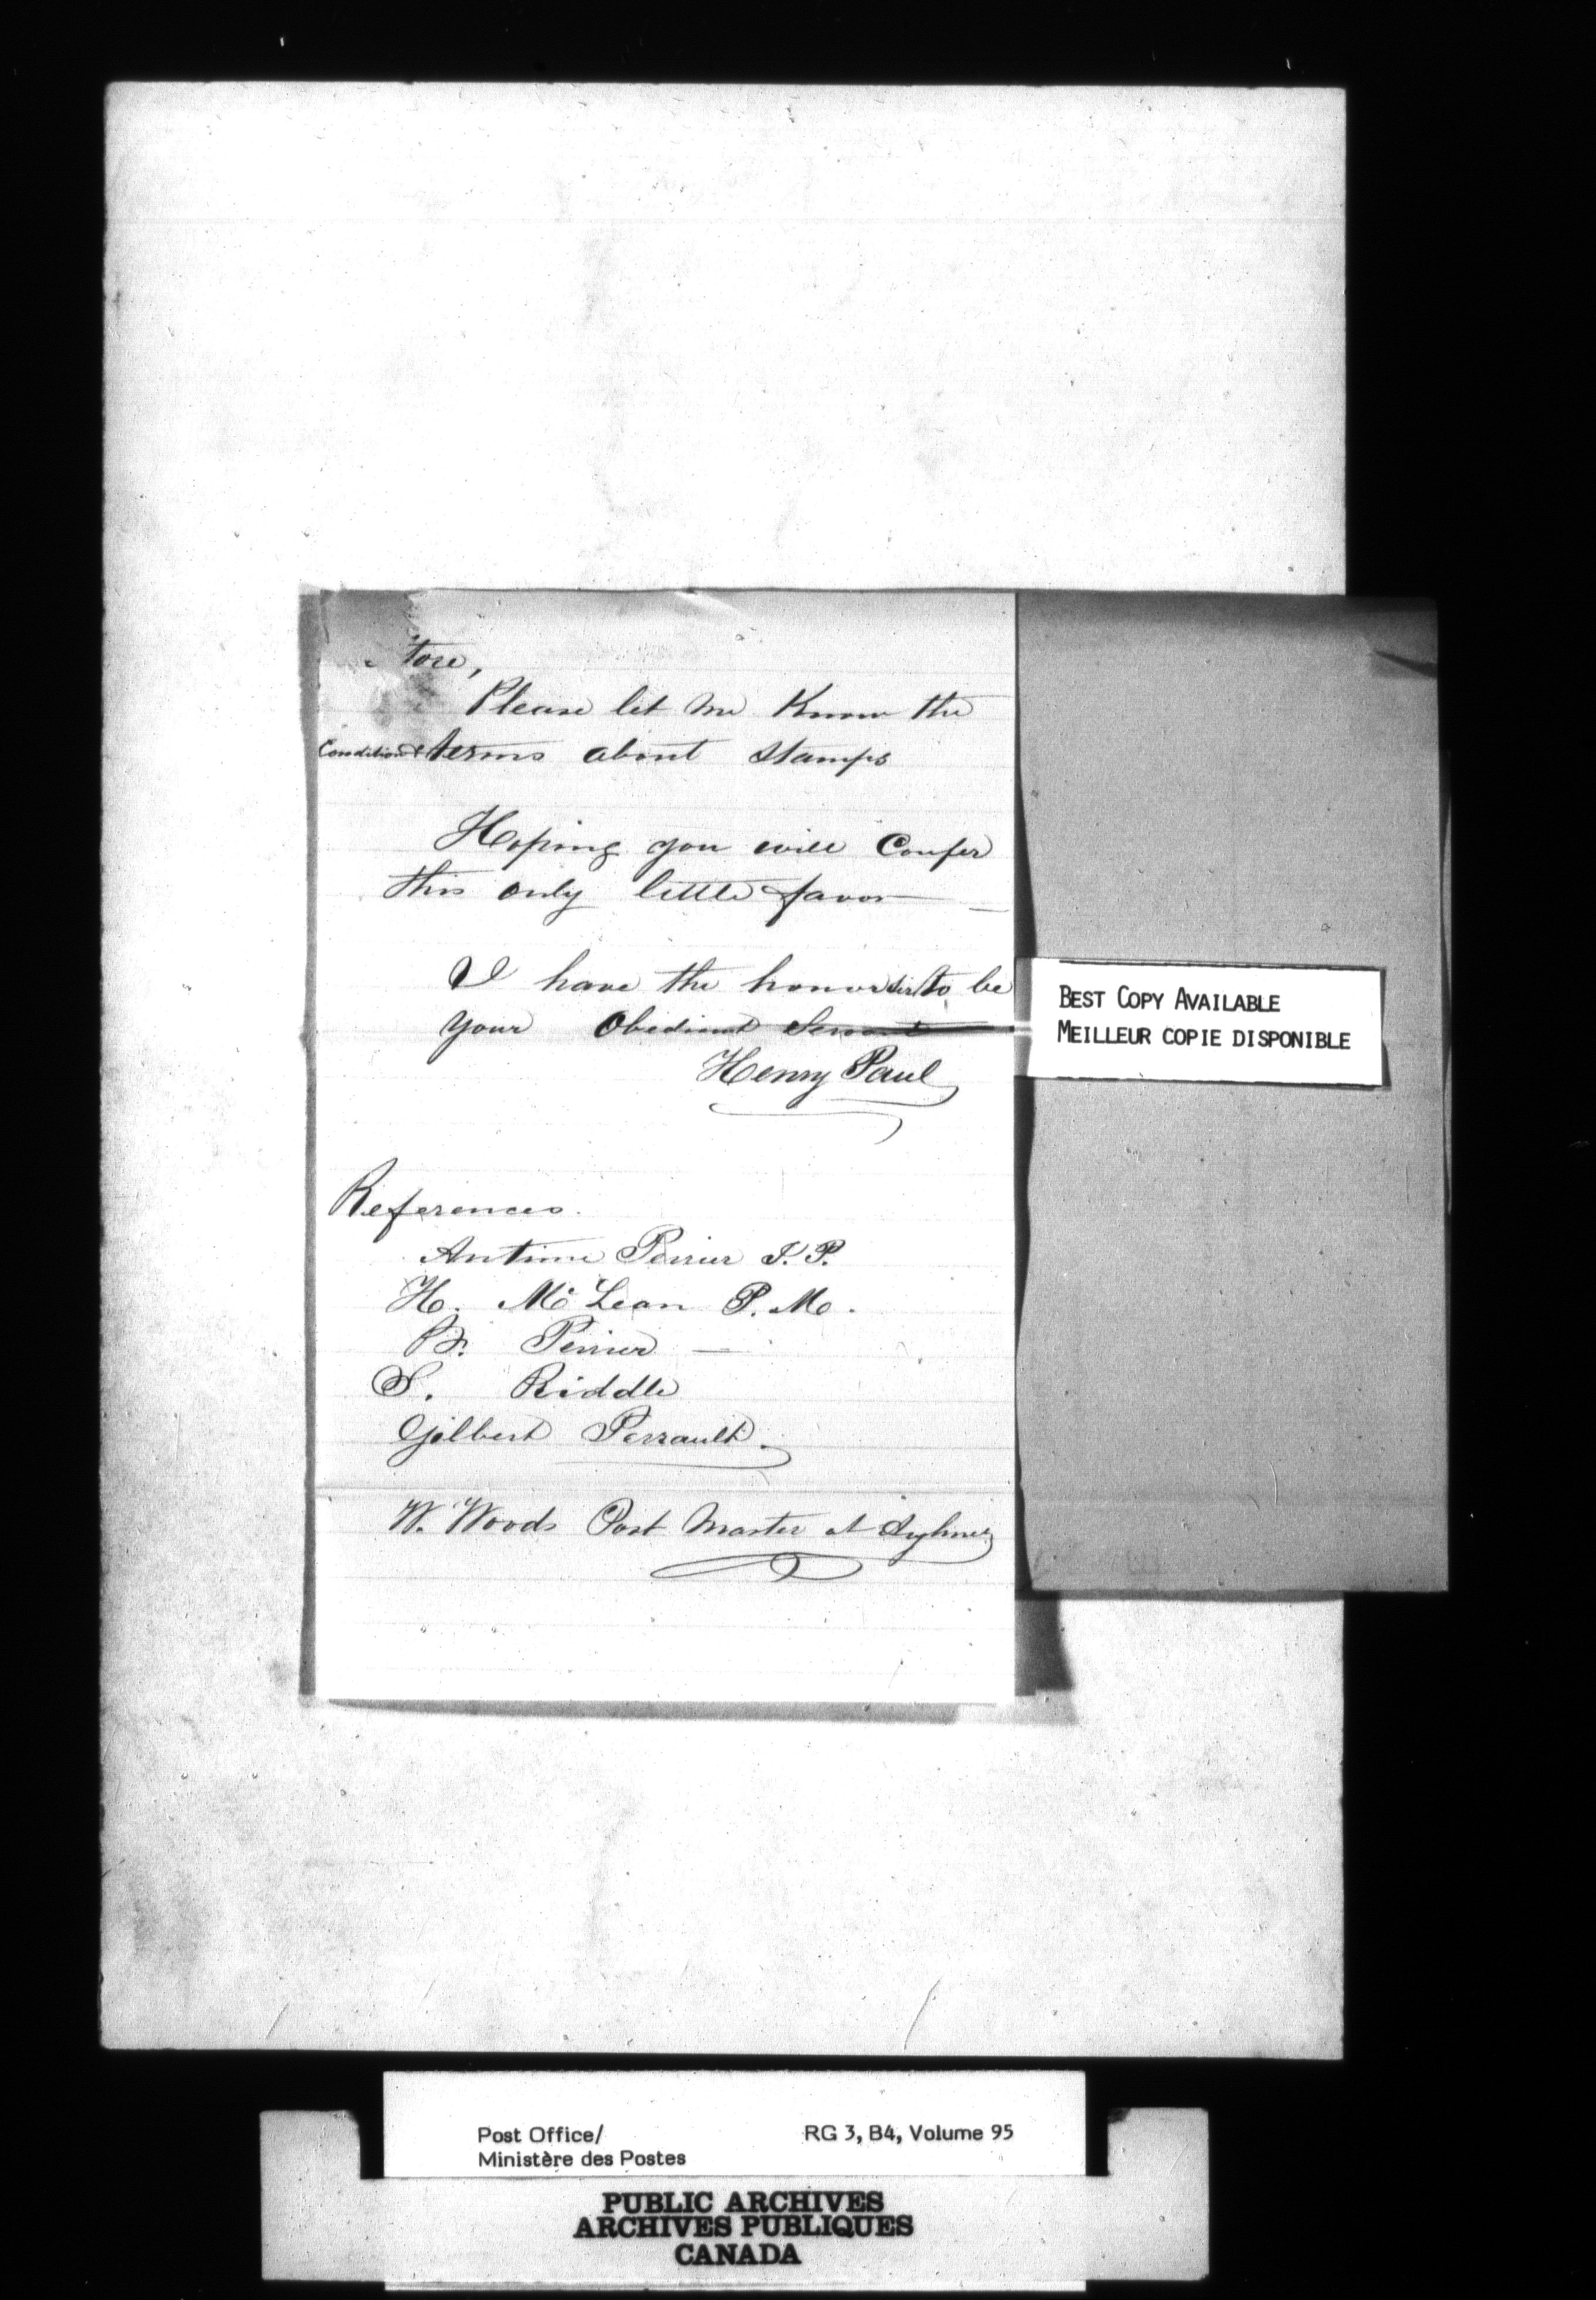 tore,
Please let me Know the
Condition & terms about stamps
Hoping you will Confer
this only little favor —
I have the honor Sir to be
your Obedient Servant
Henry Paul
References.
Antime Perrier J.P.
H. McLean P.M.
Perrier —
S. Riddle
Gilbert Perrault.
W. Woods Post Master at Aylmer
BEST COPY AVAILABLE
MEILLEUR COPIE DISPONIBLE
Post Office/ RG 3, B4, Volume 95
Ministère des Postes
PUBLIC ARCHIVES
ARCHIVES PUBLIQUES
CANADA